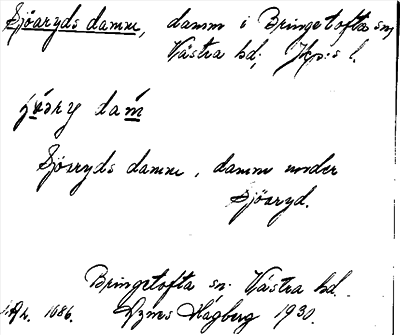 Sjöaryds damm, damm i Bringetofta sn,
Västra hd; Jkp:s l.
Sjöaryds damm, damm under
Sjöaryd.
Bringetofta sn. Västra hd.
1686. Hågberg 1930.